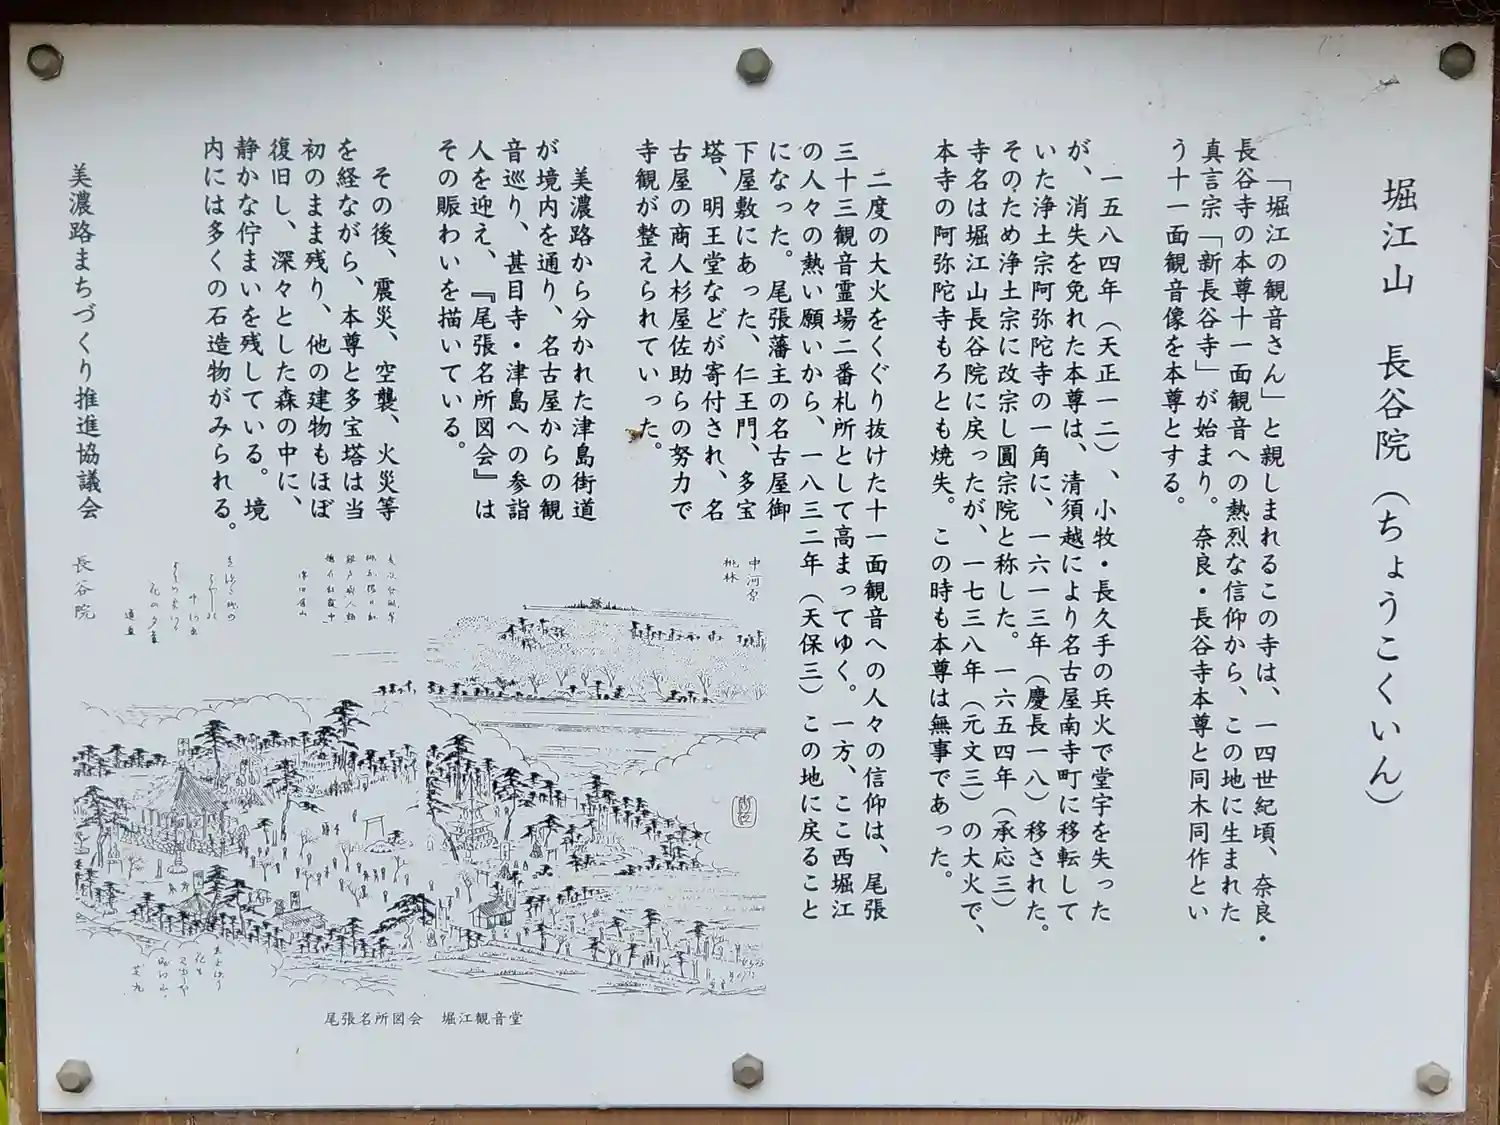 堀江山　長谷院（ちょうこくいん）
「堀江の観音さん」と親しまれるこの寺は、一四世紀頃、奈良・
長谷寺の本尊十一面観音への熱烈な信仰から、この地に生まれた
真言宗「新長谷寺」が始まり。奈良・長谷寺本尊と同木同作とい
う十一面観音像を本尊とする。
一五八四年（天正一二）、小牧・長久手の兵火で堂宇を失った
が、消失を免れた本尊は、清須越により名古屋南寺町に移転して
いた浄土宗阿弥陀寺の一角に、一六一三年（慶長一八）移された。
そのため浄土宗に改宗し圓宗院と称した。一六五四年（承応三）
寺名は堀江山長谷院に戻ったが、一七三八年（元文三）の大火で、
本寺の阿弥陀寺もろとも焼失。この時も本尊は無事であった。
二度の大火をくぐり抜けた十一面観音への人々の信仰は、尾張
三十三観音霊場二番札所として高まってゆく。一方、ここ西堀江
の人々の熱い願いから、一八三二年（天保三）この地に戻ること
になった。尾張藩主の名古屋御
下屋敷にあった、仁王門、多宝
塔、明王堂などが寄付され、名
古屋の商人杉屋佐助らの努力で
寺観が整えられていった。
美濃路から分かれた津島街道
が境内を通り、名古屋からの観
音巡り、甚目寺・津島への参詣
人を迎え、『尾張名所図会』は
その賑わいを描いている。
その後、震災、空襲、火災等
を経ながら、本尊と多宝塔は当
初のまま残り、他の建物もほぼ
復旧し、深々とした森の中に、
静かな佇まいを残している。境
内には多くの石造物がみられる。
美濃路まちづくり推進協議会
長谷院
中河原
桃林
尾張名所図会　堀江観音堂